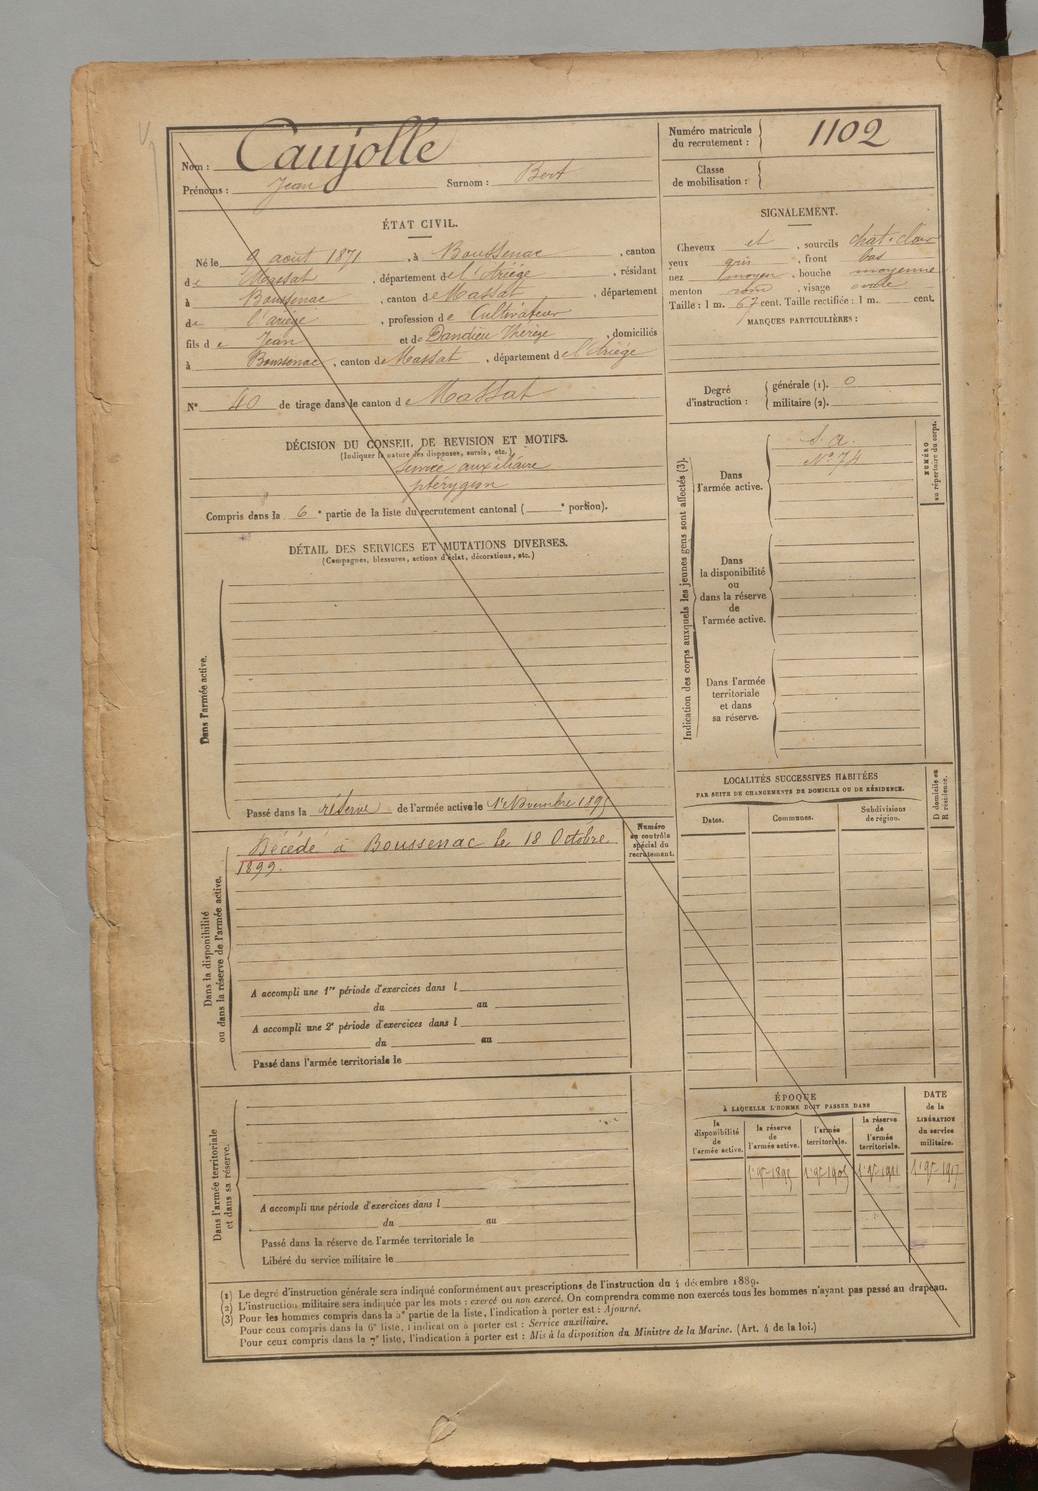 Nom : Caujolle
Prénoms : Jean Surnom : Bert
Numéro matricule du recrutement : 1102
Classe de mobilisation :
ÉTAT CIVIL.
Né le 9 août 1871, à Boussenac, canton
de Massat, département de l'Ariège, résidant
à Boussenac, canton de Massat, département
de l'ariège, profession de Cultivateur
fils de Jean et de Dandieu Thérèse, domiciliés
à Boussenac, canton de Massat, département de l'Ariège
N° 40 de tirage dans le canton de Massat
SIGNALEMENT.
Cheveux et, sourcils chat. clair
yeux gris, front bas
nez moyen, bouche moyenne
menton rond, visage ovale
Taille : 1 m. 67 cent. Taille rectifiée : 1 m. cent.
MARQUES PARTICULIÈRES :
Degré d'instruction : générale (1). 0
militaire (2).
DÉCISION DU CONSEIL DE REVISION ET MOTIFS.
(Indiquer la nature des dispenses, sursis, etc.)
Service auxiliaire
ptérygion
Compris dans la 6e partie de la liste du recrutement cantonal ( e portion).
DÉTAIL DES SERVICES ET MUTATIONS DIVERSES.
(Campagnes, blessures, actions d'éclat, décorations, etc.)
Dans l'armée active.
Passé dans la réserve de l'armée active le 1er Novembre 1895
Numéro au contrôle spécial du recrutement.
Dans la disponibilité ou dans la réserve de l'armée active.
Décédé à Boussenac le 18 Octobre
1899.
A accompli une 1re période d'exercices dans l
du au
A accompli une 2e période d'exercices dans l
du au
Passé dans l'armée territoriale le
Dans l'armée territoriale et dans sa réserve.
A accompli une période d'exercices dans l
du au
Passé dans la réserve de l'armée territoriale le
Libéré du service militaire le
Indication des corps auxquels les jeunes gens sont affectés (3).
NUMÉRO au répertoire du corps.
Dans l'armée active.
S. a.
N° 74
Dans la disponibilité ou dans la réserve de l'armée active.
Dans l'armée territoriale et dans sa réserve.
LOCALITÉS SUCCESSIVES HABITÉES
PAR SUITE DE CHANGEMENTS DE DOMICILE OU DE RÉSIDENCE.
Dates. Communes. Subdivisions de région. D domicile ou R résidence.
ÉPOQUE
À LAQUELLE L'HOMME DOIT PASSER DANS
la disponibilité de l'armée active. la réserve de l'armée active. l'armée territoriale. la réserve de l'armée territoriale.
DATE de la LIBÉRATION du service militaire.
1895 1905 1911 1917
(1) Le degré d'instruction générale sera indiqué conformément aux prescriptions de l'instruction du 4 décembre 1889.
(2) L'instruction militaire sera indiquée par les mots : exercé ou non exercé. On comprendra comme non exercés tous les hommes n'ayant pas passé au drapeau.
(3) Pour les hommes compris dans la 5e partie de la liste, l'indication à porter est : Ajourné.
Pour ceux compris dans la 6e liste, l'indication à porter est : Service auxiliaire.
Pour ceux compris dans la 7e liste, l'indication à porter est : Mis à la disposition du Ministre de la Marine. (Art. 4 de la loi.)